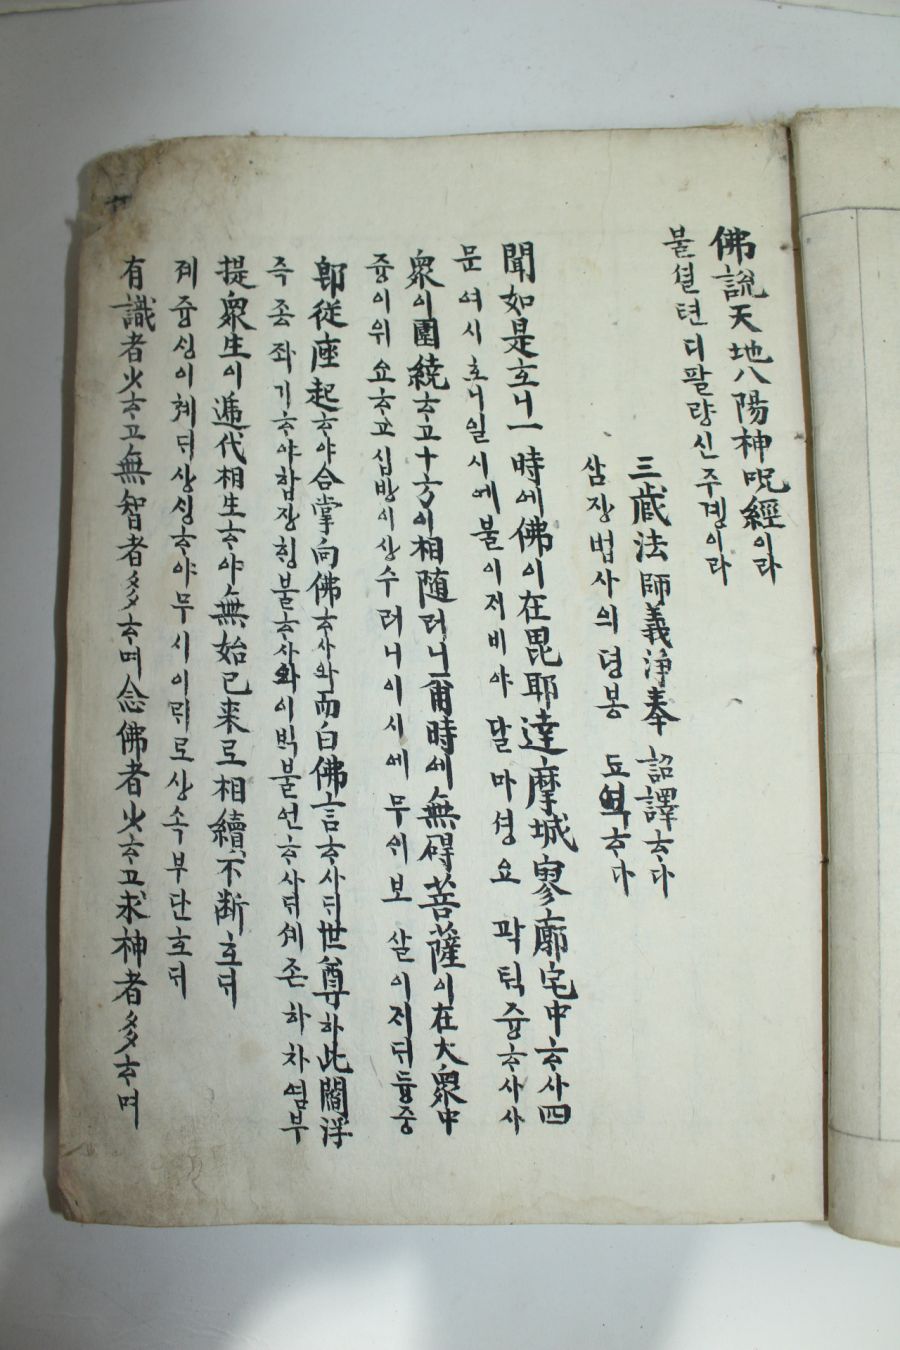 佛說天地八陽神呪經이라
불셜텬디팔량신주경이라
三藏法師義淨奉 詔譯ᄒᆞ다
삼장법사의뎡봉 됴역ᄒᆞ다
聞如是ᄒᆞ니一時에佛이在毘耶達摩城寥廓宅中ᄒᆞ사四
문여시ᄒᆞ니일시에불이저비야달마셩요곽턱즁ᄒᆞ사사
衆이圍繞ᄒᆞ고十方이相随러니爾時에無碍菩薩이在大衆中
즁이위요ᄒᆞ고십방이상수러니이시에무ᄋᆡ보살이저ᄃᆡ듕중
卽從座起ᄒᆞ야合掌向佛ᄒᆞ사와而白佛言ᄒᆞ사ᄃᆡ世尊하此閻浮
즉종좌기ᄒᆞ야합장힝불ᄒᆞ사와이ᄇᆡᆨ불언ᄒᆞ사ᄃᆡ셰존하차염부
提衆生이遞代相生ᄒᆞ야無始已来로相續不断호ᄃᆡ
졔즁싱이쳬ᄃᆡ상싱ᄒᆞ야무시이ᄅᆡ로상속부단호ᄃᆡ
有識者少ᄒᆞ고無智者多ᄒᆞ며念佛者少ᄒᆞ고求神者多ᄒᆞ며